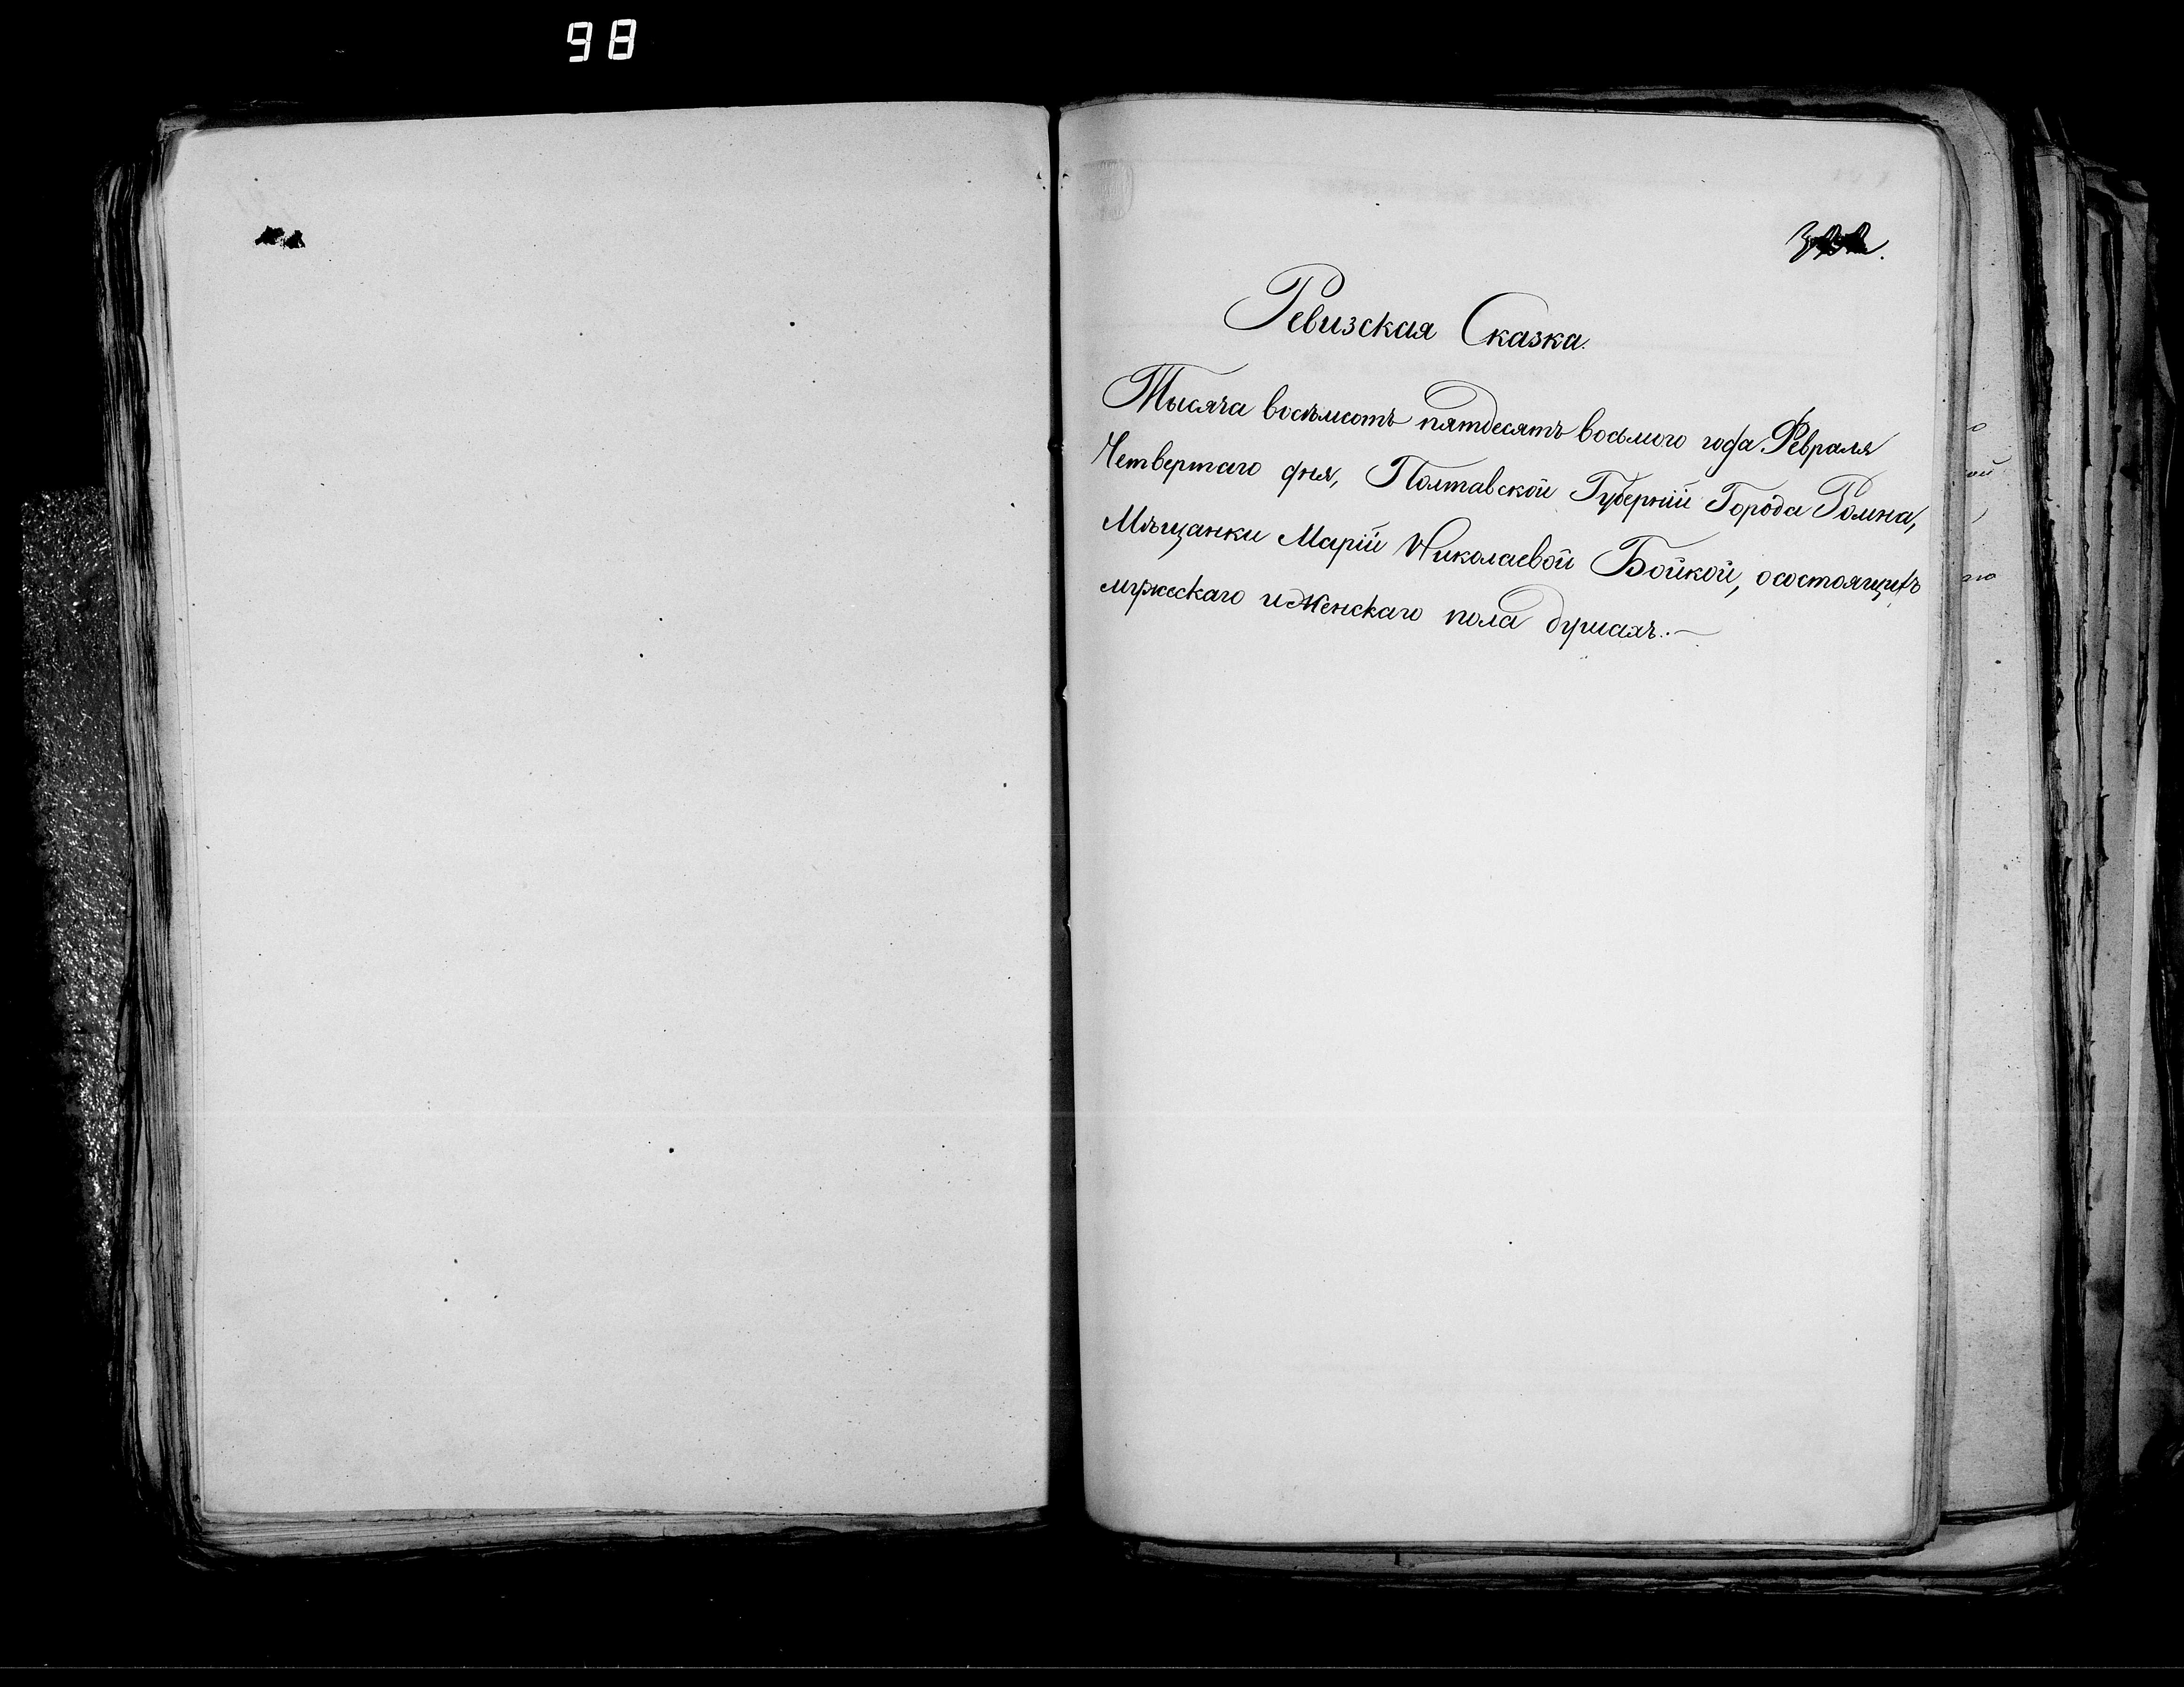 98
Ревизская Сказка.
Тысяча восѣмсотъ пятдесятъ восьмого года Февраля
Четвертаго дня, Полтавской Губерніи Города Ромна,
Мѣщанки Маріи Николаевой Бойкой, о состоящихъ
мужескаго и Женскаго пола душахъ.